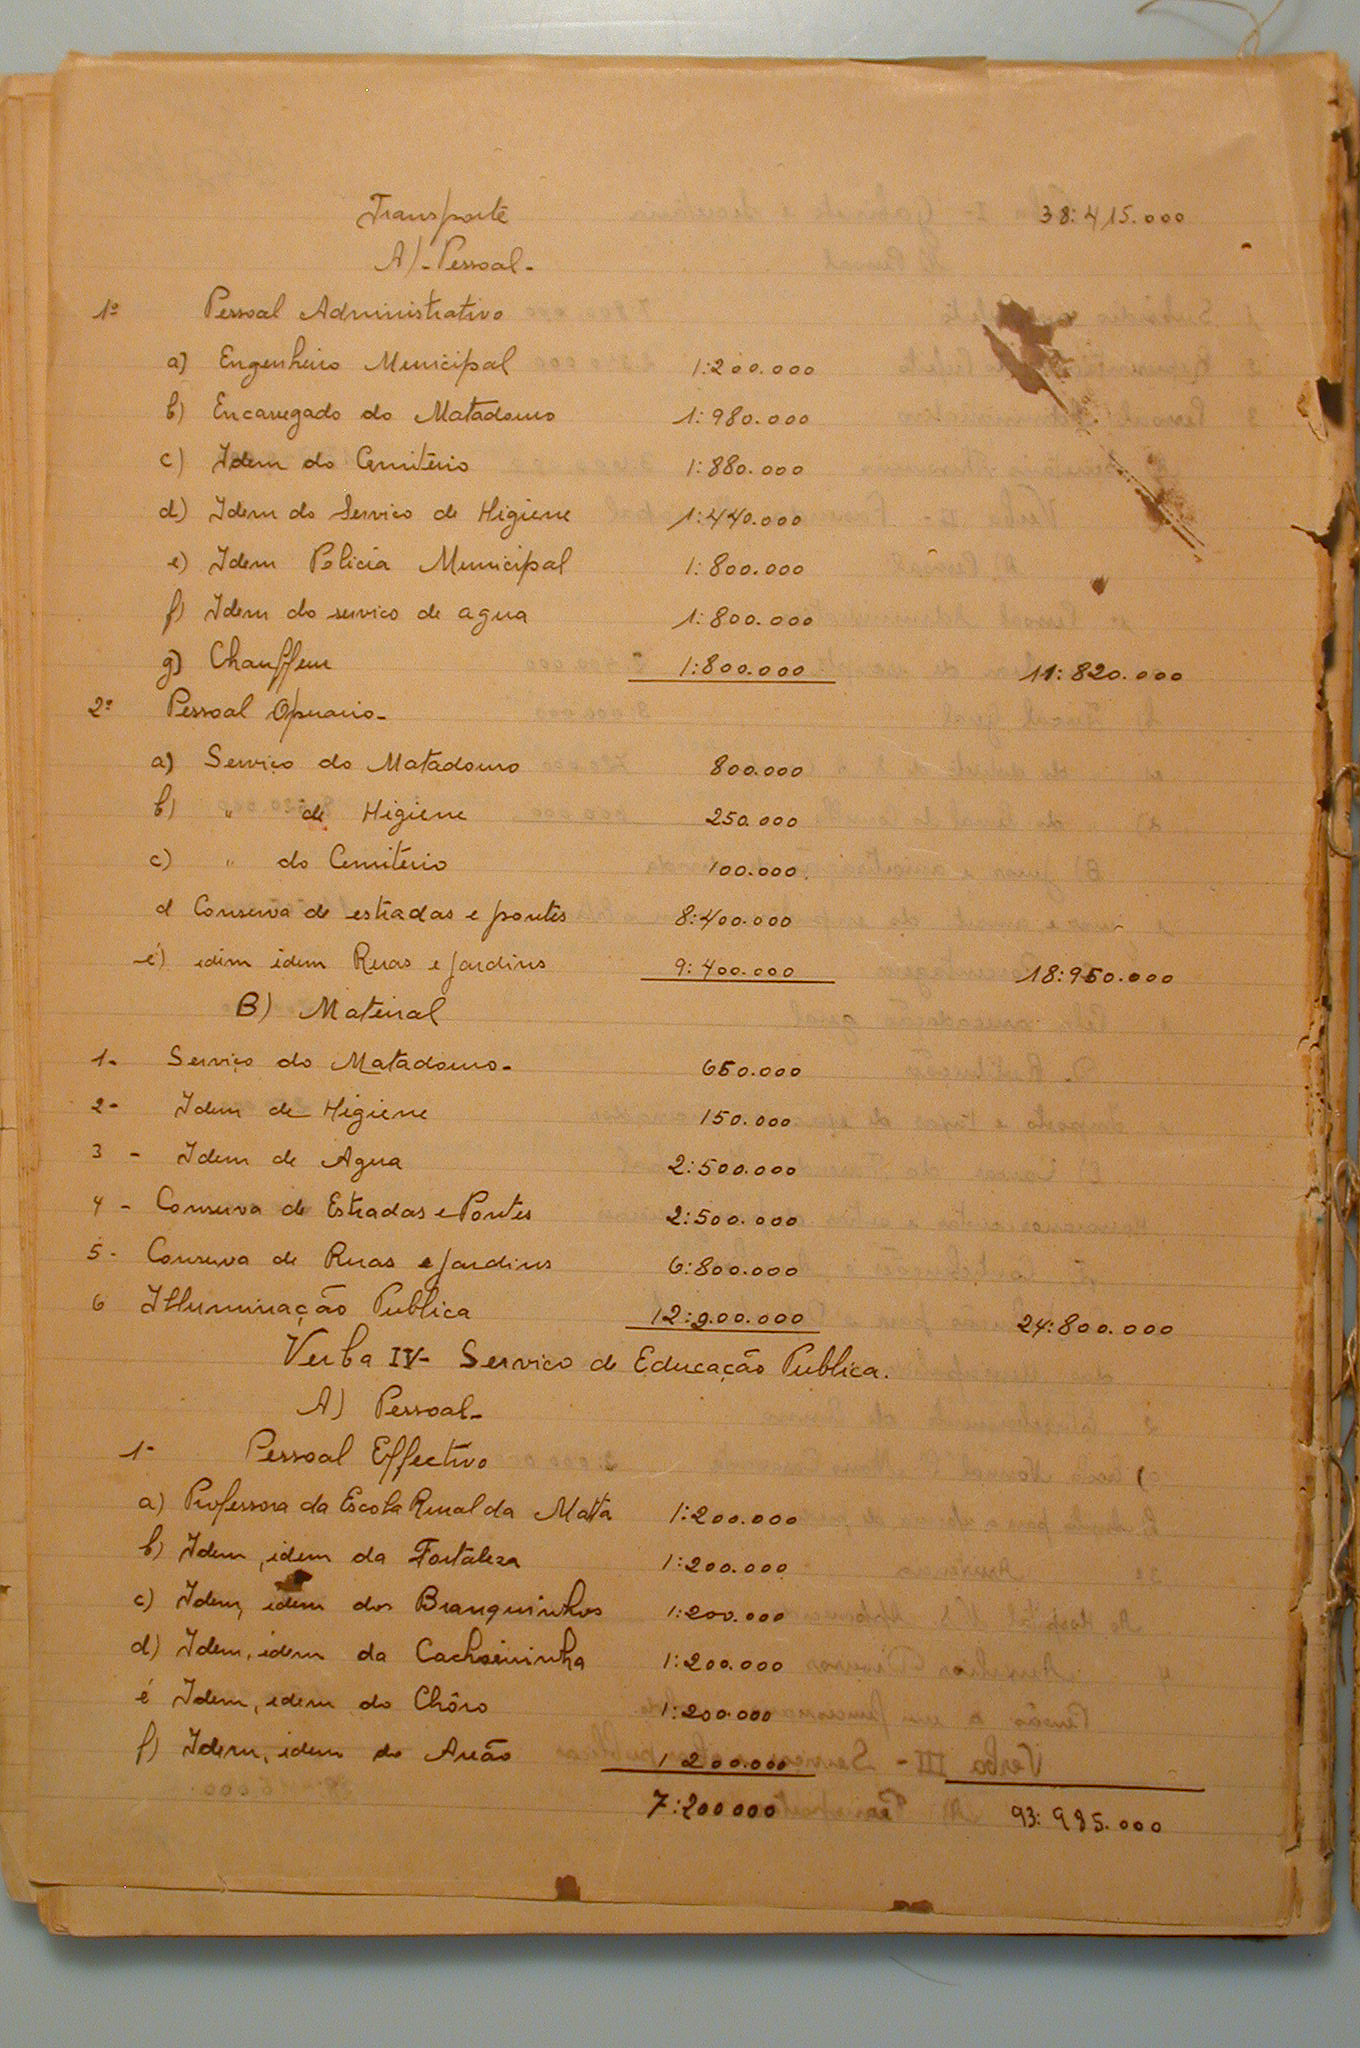 Transporte 38:415.000
A) - Pessoal -
1º Pessoal Administrativo
a) Engenheiro Municipal 1:200.000
b) Encarregado do Matadouro 1:980.000
c) Idem do Cemitério 1:880.000
d) Idem do Servico de Higiene 1:440.000
e) Idem Policia Municipal 1:800.000
f) Idem do servico de agua 1:800.000
g) Chauffeur 1:800.000 11:820.000
2º Pessoal Operario -
a) Serviço do Matadouro 800.000
b) " de Higiene 250.000
c) " do Cemitério 100.000
d Conserva de estradas e pontes 8:400.000
e) idem idem Ruas e Jardins 9:400.000 18:950.000
B) Material
1 - Serviço do Matadouro - 650.000
2 - Idem de Higiene 150.000
3 - Idem de Agua 2:500.000
4 - Conserva de Estradas e Pontes 2:500.000
5 - Conserva de Ruas e Jardins 6:800.000
6 Illuminação Publica 12:200.000 24:800.000
Verba IV - Servico de Educação Publica.
A) Pessoal -
1 - Pessoal Effectivo
a) Professora da Escola Rural da Matta 1:200.000
b) Idem, idem da Fortaleza 1:200.000
c) Idem, idem dos Branquinhos 1:200.000
d) Idem, idem da Cachoeirinha 1:200.000
é Idem, idem do Chôro 1:200.000
f) Idem, idem do Areão 1 200.000
7:200000 93:985.000